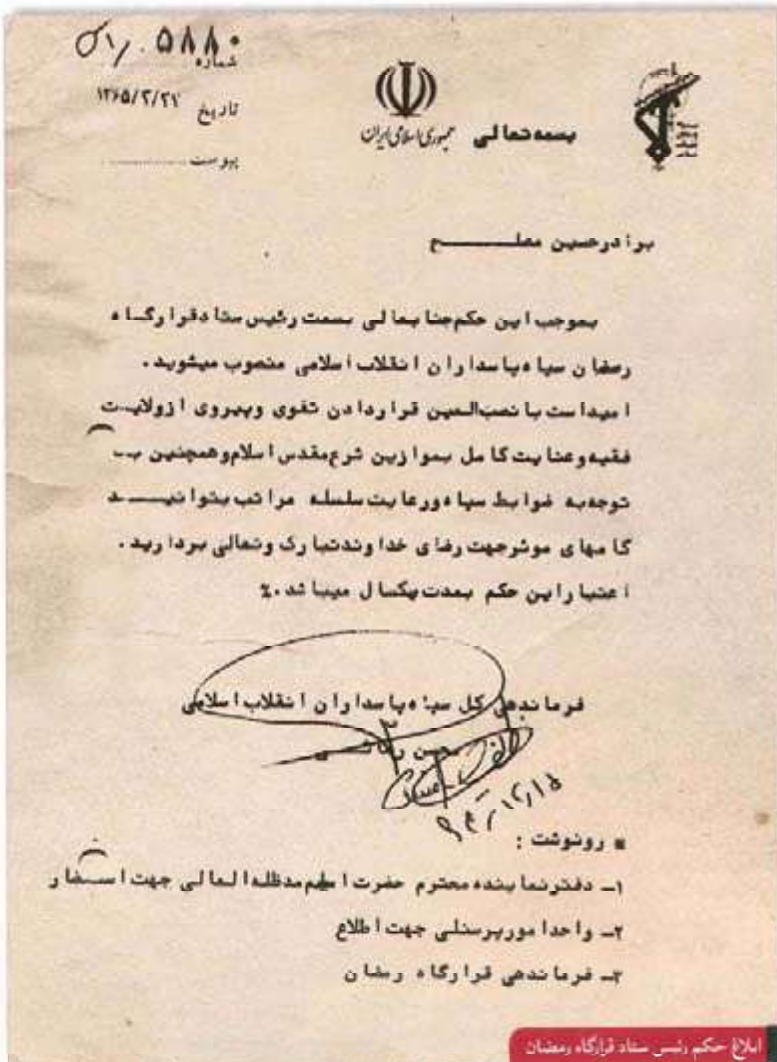 شماره ۵۸۸۰
تاریخ ۱۳۶۵/۲/۲۷
پیوست
جمهوری اسلامی ایران
بسمه تعالی
برادر حسین مصلح
بموجب این حکم جنابعالی بسمت رئیس ستاد قرارگاه
رمضان سپاه پاسداران انقلاب اسلامی منصوب میشوید.
امید است با نصب‌العین قراردادن تقوی و پیروی از ولایت
فقیه و عنایت کامل بموازین شرع مقدس اسلام و همچنین با
توجه به ضوابط سپاه و رعایت سلسله مراتب بتوانید
گامهای موثر جهت رضای خداوند تبارک و تعالی بردارید.
اعتبار این حکم بمدت یکسال میباشد.٪
فرماندهی کل سپاه پاسداران انقلاب اسلامی
محسن رضائی
رونوشت :
۱ـ دفتر نماینده محترم حضرت امام مدظله العالی جهت استحضار
۲ـ واحد امور پرسنلی جهت اطلاع
۳ـ فرماندهی قرارگاه رمضان
ابلاغ حکم رئیس ستاد قرارگاه رمضان